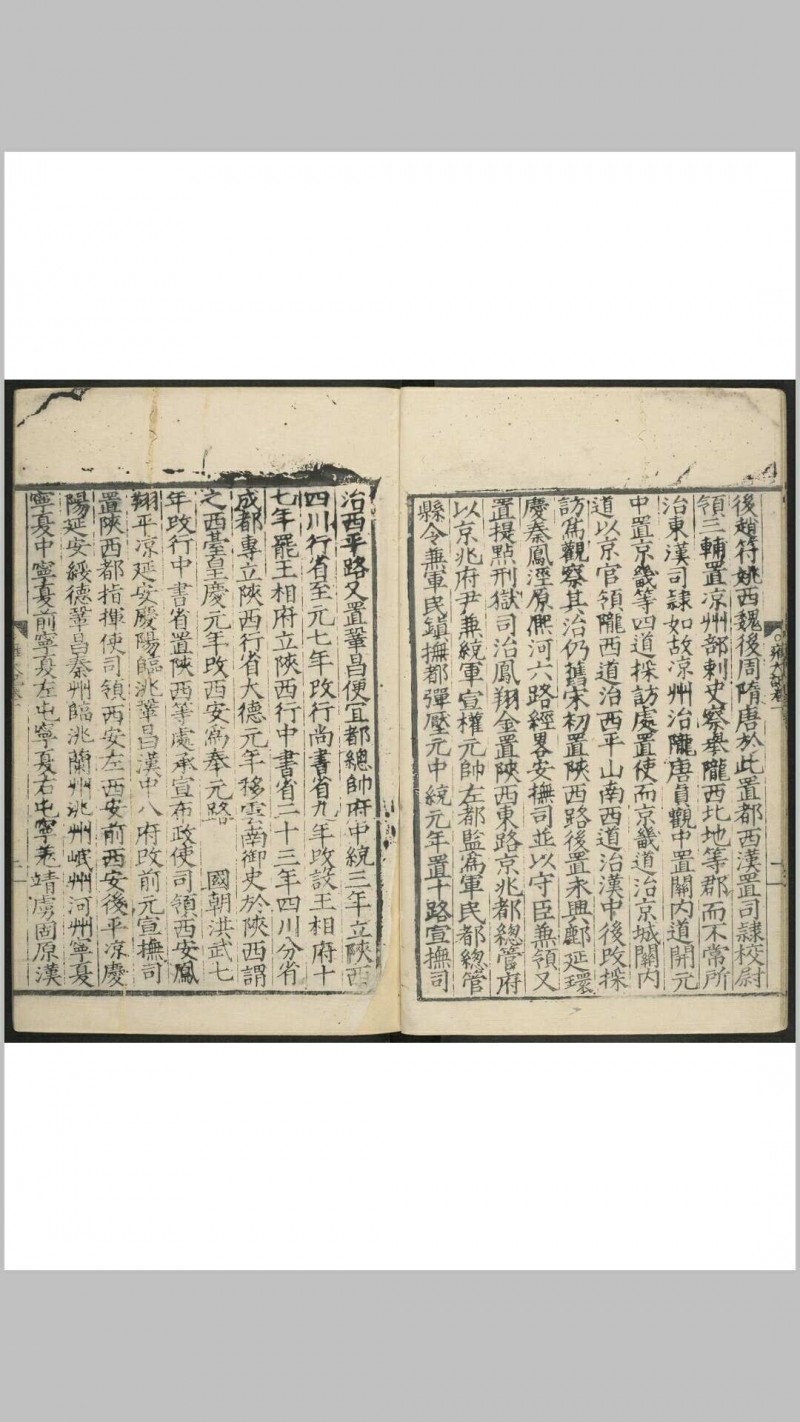 後趙符姚西魏後周隋唐於此置都西漢置司隷校尉
領三輔置凉州部刺史察舉隴西北地等郡而不常所
治東漢司隷如故凉州治隴唐貞觀中置關内道開元
中置京畿等四道採訪處置使而京畿道治京城關内
道以京官領隴西道治西平山南西道治漢中後改採
訪爲觀察其治仍舊宋初置陜西路後置永興鄜延環
慶秦鳳涇原熈河六路經畧安撫司並以守臣兼領又
置提點刑獄司治鳳翔金置陜西東路京兆都總管府
以京兆府尹兼統軍宣權元帥左都監爲軍民都總管
縣令兼軍民鎮撫都彈壓元中統元年置十路宣撫司
治西平路又置鞏昌便宜都總帥府中統三年立陜西
四川行省至元七年改行尚書省九年改設王相府十
七年罷王相府立陜西行中書省二十三年四川分省
成都專立陜西行省大德元年移雲南御史於陜西謂
之西臺皇慶元年改西安爲奉元路 國朝洪武七
年改行中書省置陜西等處承宣布政使司領西安鳳
翔平凉延安慶陽臨洮鞏昌漢中八府改前元宣撫司
置陜西都指揮使司領西安左西安前西安後平凉慶
陽延安綏德鞏昌秦州臨洮蘭州洮州岷州河州寧夏
寧夏中寧夏前寧夏左屯寧夏右屯寧羌靖虜固原漢